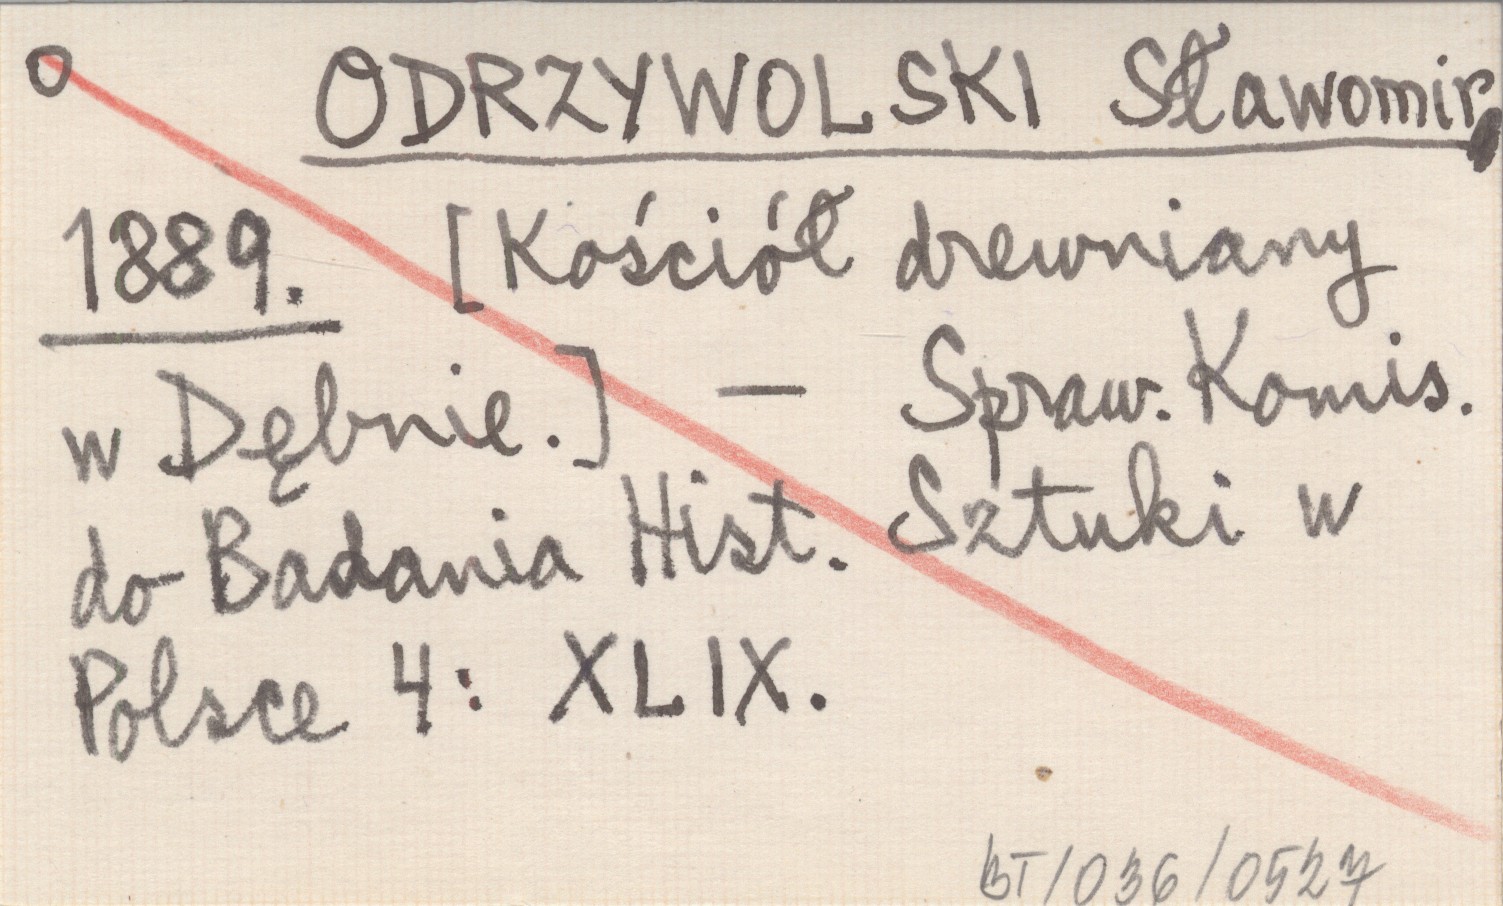 O ODRZYWOLSKI Sławomir,
1889. [Kościół drewniany
w Dębnie.] — Spraw. Komis.
do Badania Hist. Sztuki w
Polsce 4: XLIX.
BT/036/0527